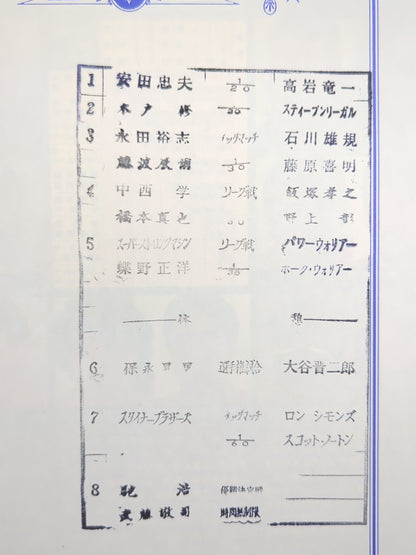 1 安田忠夫 1/20 高岩竜一
2 木戸修 1/30 スティーブンリーガル
3 永田裕志 タッグマッチ 石川雄規
難波辰胡 1/30 藤原喜明
4 中西学 リーグ戦 飯塚孝之
橋本真也 野上彰
5 スーパーストロングマシン リーグ戦 パワーウォリアー
蝶野正洋 1/30 ホーク・ウォリアー
休 憩
6 保永 選手権試合 大谷晋二郎
7 スタイナーブラザーズ タッグマッチ ロン シモンズ
1/60 スコット・ノートン
8 馳 浩 優勝決定戦
武藤敬司 時間無制限